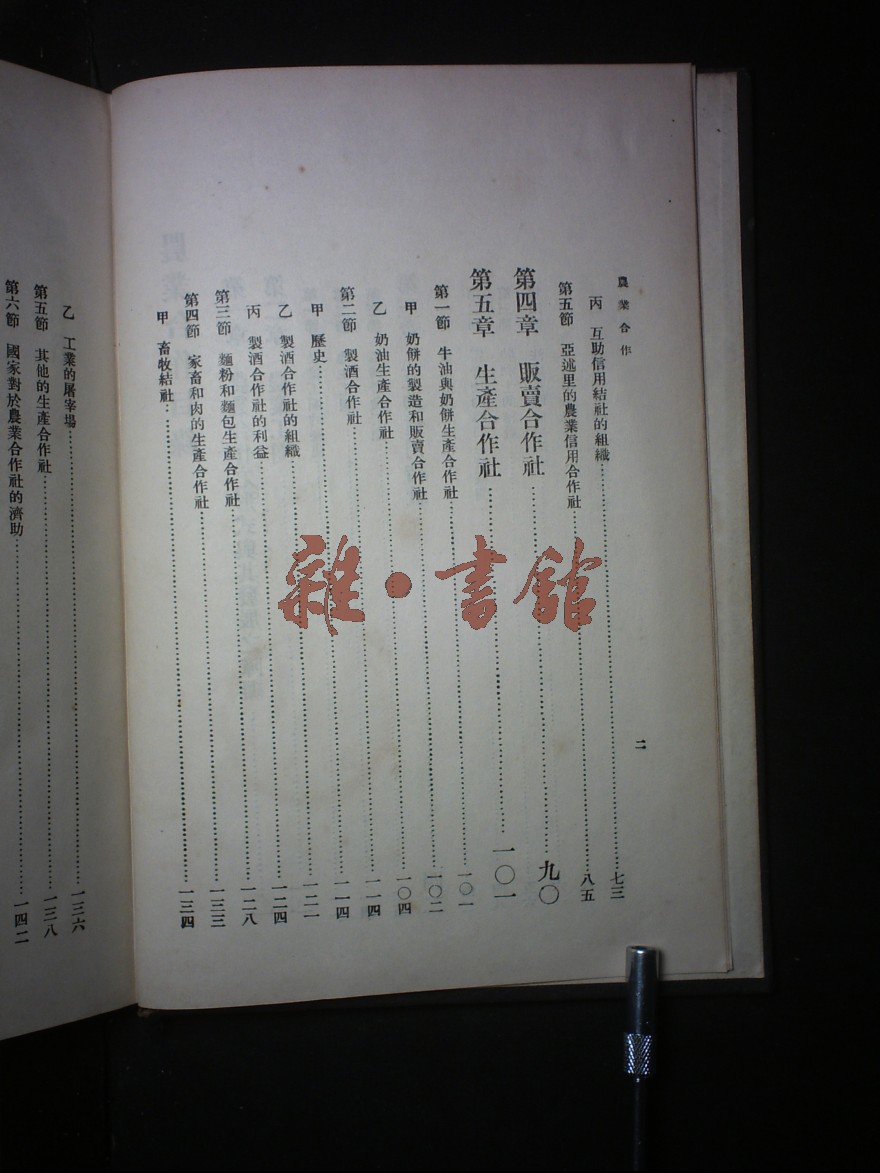 農業合作
二
丙 互助信用結社的組織……七三
第五節 亞述里的農業信用合作社……八五
第四章 販賣合作社……九〇
第五章 生產合作社……一〇一
第一節 牛油與奶餅生產合作社……一〇一
甲 奶餅的製造和販賣合作社……一〇二
乙 奶油生產合作社……一〇四
第二節 製酒合作社……一一四
甲 歷史……一一四
乙 製酒合作社的組織……一二一
丙 製酒合作社的利益……一二四
第三節 麵粉和麵包生產合作社……一二八
第四節 家畜和肉的生產合作社……一三三
甲 畜牧結社……一三四
乙 工業的屠宰場……一三六
第五節 其他的生產合作社……一三八
第六節 國家對於農業合作社的濟助……一四二
雜·書館